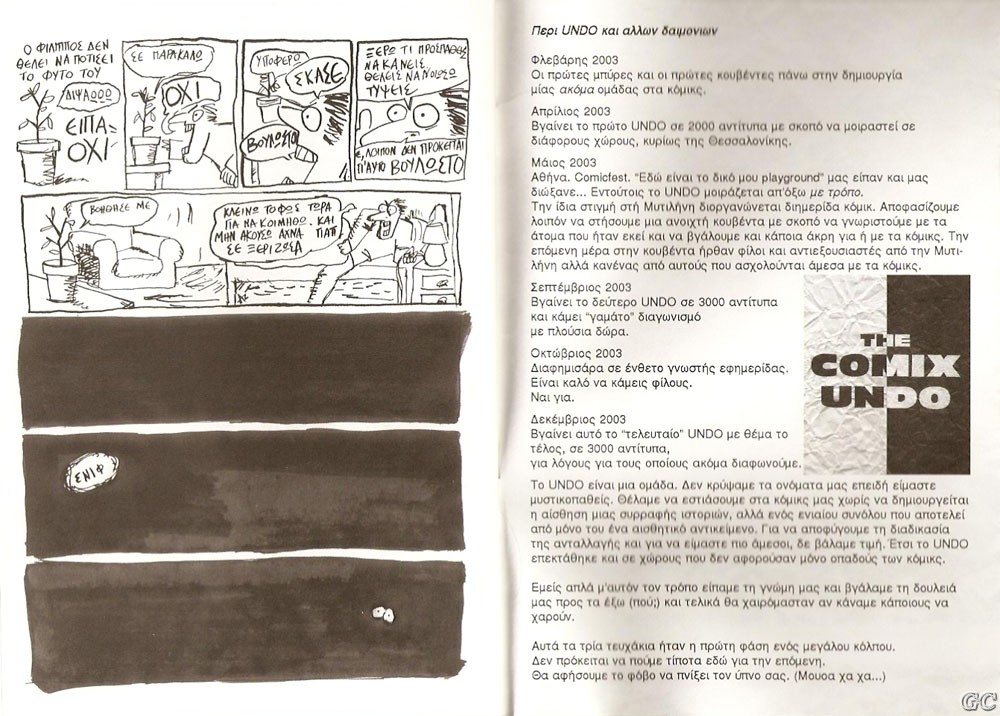 Ο ΦΙΛΙΠΠΟΣ ΔΕΝ
ΘΕΛΕΙ ΝΑ ΠΟΤΙΣΕΙ
ΤΟ ΦΥΤΟ ΤΟΥ
ΔΙΨΑΩΩΩ
ΕΙΠΑ
ΟΧΙ
ΣΕ ΠΑΡΑΚΑΛΩ
ΟΧΙ
ΥΠΟΦΕΡΩ
ΣΚΑΣΕ
ΒΟΥΛΩΣΤΟ
ΞΕΡΩ ΤΙ ΠΡΟΣΠΑΘΕΙΣ
ΝΑ ΚΑΝΕΙΣ
ΘΕΛΕΙΣ ΝΑ ΝΙΩΣΩ
ΤΥΨΕΙΣ
Ε, ΛΟΙΠΟΝ ΔΕΝ ΠΡΟΚΕΙΤΑΙ
ΓΙ'ΑΥΤΟ ΒΟΥΛΩΣΤΟ
ΒΟΗΘΗΣΕ ΜΕ
ΚΛΕΙΝΩ ΤΟ ΦΩΣ ΤΩΡΑ
ΓΙΑ ΝΑ ΚΟΙΜΗΘΩ. ΚΑΙ
ΜΗΝ ΑΚΟΥΣΩ ΑΧΝΑ ΓΙΑΤΙ
ΣΕ ΞΕΡΙΖΩΣΑ
ΣΝΙΦ
Περι UNDO και αλλων δαιμονιων
Φλεβάρης 2003
Οι πρώτες μπύρες και οι πρώτες κουβέντες πάνω στην δημιουργία
μίας ακόμα ομάδας στα κόμικς.
Απρίλιος 2003
Βγαίνει το πρώτο UNDO σε 2000 αντίτυπα με σκοπό να μοιραστεί σε
διάφορους χώρους, κυρίως της Θεσσαλονίκης.
Μάιος 2003
Αθήνα. Comicfest. “Εδώ είναι το δικό μου playground” μας είπαν και μας
διώξανε... Εντούτοις το UNDO μοιράζεται απ'όξω με τρόπο.
Την ίδια στιγμή στη Μυτιλήνη διοργανώνεται διημερίδα κόμικ. Αποφασίζουμε
λοιπόν να στήσουμε μια ανοιχτή κουβέντα με σκοπό να γνωριστούμε με τα
άτομα που ήταν εκεί και να βγάλουμε και κάποια άκρη για ή με τα κόμικς. Την
επόμενη μέρα στην κουβέντα ήρθαν φίλοι και αντιεξουσιαστές από την Μυτι-
λήνη αλλά κανένας από αυτούς που ασχολούνται άμεσα με τα κόμικς.
Σεπτέμβριος 2003
Βγαίνει το δεύτερο UNDO σε 3000 αντίτυπα
και κάμει “γαμάτο” διαγωνισμό
με πλούσια δώρα.
Οκτώβριος 2003
Διαφημισάρα σε ένθετο γνωστής εφημερίδας.
Είναι καλό να κάμεις φίλους.
Ναι για.
Δεκέμβριος 2003
Βγαίνει αυτό το “τελευταίο” UNDO με θέμα το
τέλος, σε 3000 αντίτυπα,
για λόγους για τους οποίους ακόμα διαφωνούμε.
THE
COMIX
UNDO
Το UNDO είναι μια ομάδα. Δεν κρύψαμε τα ονόματα μας επειδή είμαστε
μυστικοπαθείς. Θέλαμε να εστιάσουμε στα κόμικς μας χωρίς να δημιουργείται
η αίσθηση μιας συρραφής ιστοριών, αλλά ενός ενιαίου συνόλου που αποτελεί
από μόνο του ένα αισθητικό αντικείμενο. Για να αποφύγουμε τη διαδικασία
της ανταλλαγής και για να είμαστε πιο άμεσοι, δε βάλαμε τιμή. Έτσι το UNDO
επεκτάθηκε και σε χώρους που δεν αφορούσαν μόνο οπαδούς των κόμικς.
Εμείς απλά μ'αυτόν τον τρόπο είπαμε τη γνώμη μας και βγάλαμε τη δουλειά
μας προς τα έξω (πού;) και τελικά θα χαιρόμασταν αν κάναμε κάποιους να
χαρούν.
Αυτά τα τρία τευχάκια ήταν η πρώτη φάση ενός μεγάλου κόλπου.
Δεν πρόκειται να πούμε τίποτα εδώ για την επόμενη.
Θα αφήσουμε το φόβο να πνίξει τον ύπνο σας. (Μουοα χα χα...)
GC